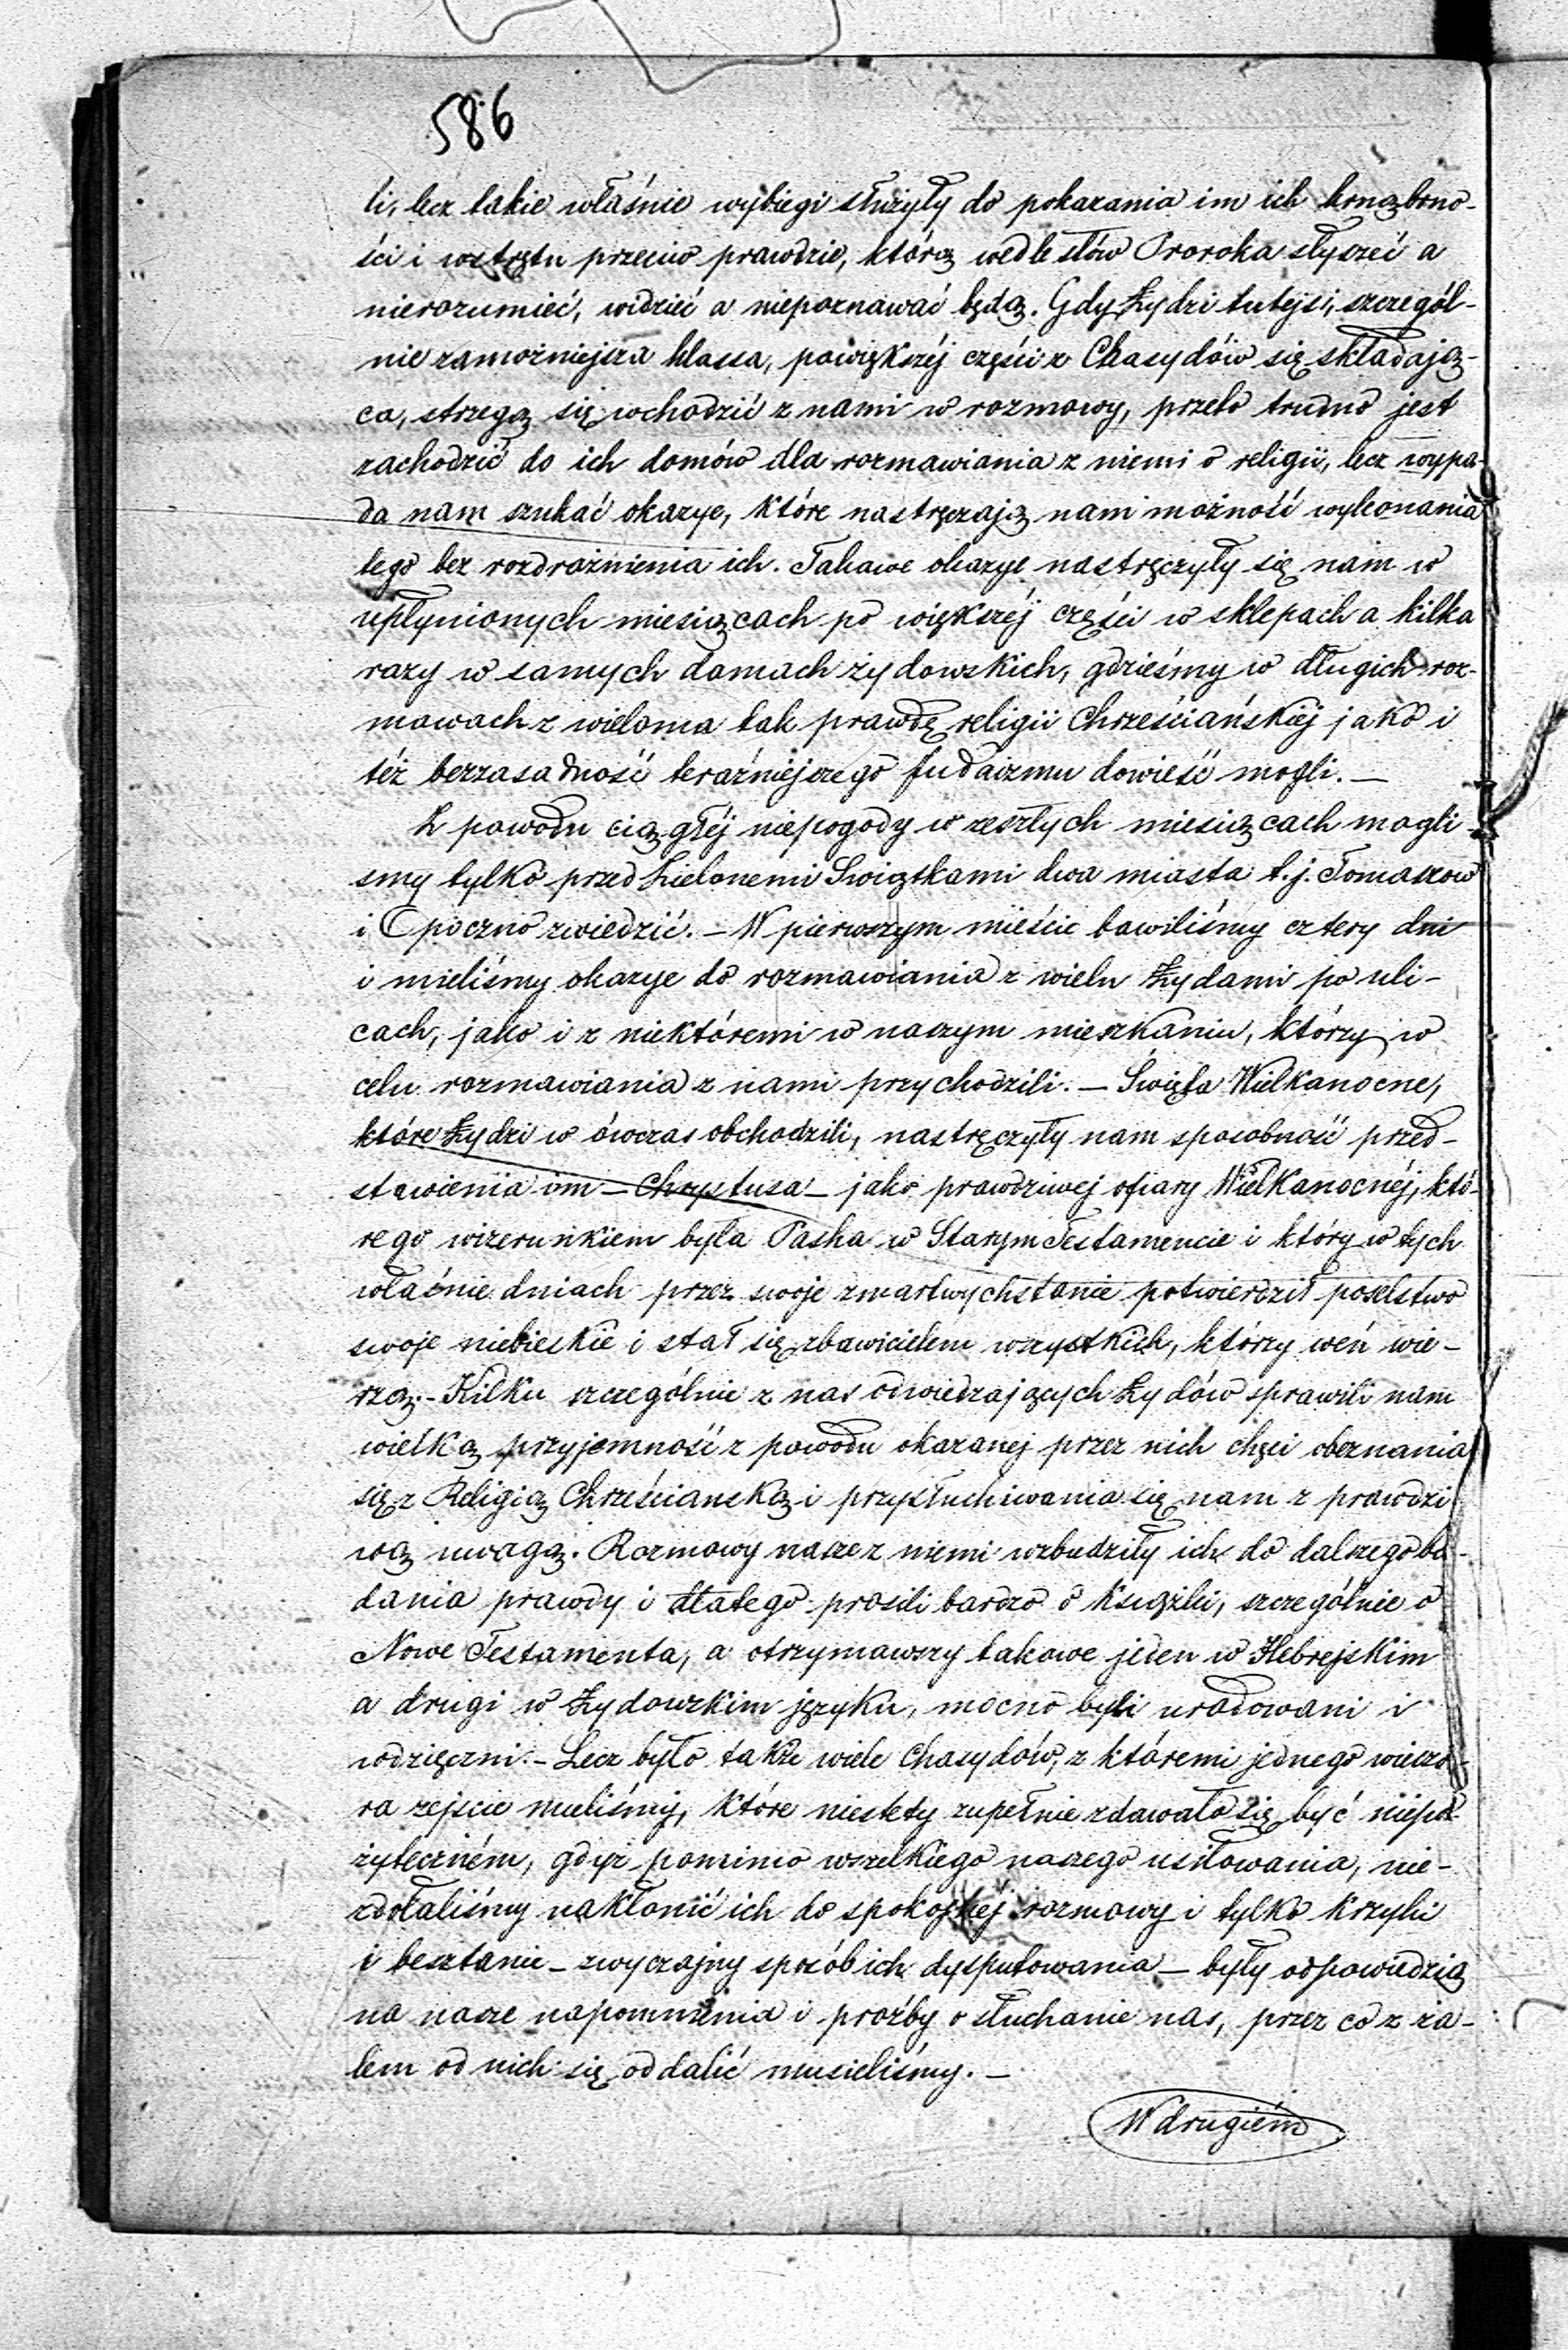 586
li, lecz takie właśnie wybiegi służyły do pokazania im ich krnąbrno-
ści i wstrętu przeciw prawdzie, którą wedle słów Proroka słyszeć a
nierozumieć, widzieć a niepoznawać będą. Gdy Żydzi tutejsi, szczegól-
nie zamożniejsza klassa, powiększéj części z Chasydów się składają-
ca, strzegą się wchodzić z nami w rozmowy, przeto trudno jest
zachodzić do ich domów dla rozmawiania z niemi o religii, lecz wypa-
da nam szukać okazye, które nastręczają nam możność wykonania
tego bez rozdrażnienia ich. Takowe okazye nastręczyły się nam w
upłynionych miesiącach po większéj części w sklepach a kilka
razy w samych domach żydowskich, gdzieśmy w długich roz-
mowach z wieloma tak prawdę religii Chrześciańskiéj jako i
téż bezzasadność teraźniejszego Judaizmu dowieść mogli. —
Z powodu ciągłéj niepogody w zeszłych miesiącach mogli-
smy tylko przed Zielonemi Swiątkami dwa miasta t.j. Tomaszow
i Opoczno zwiedzić. — W pierwszym mieście bawiliśmy cztery dni
i mieliśmy okazye do rozmawiania z wielu Żydami po uli-
cach, jako i z niektóremi w naszym mieszkaniu, którzy w
celu rozmawiania z nami przychodzili. — Święta Wielkanocne,
które Żydzi w ówczas obchodzili, nastręczyły nam sposobność przed-
stawienia im — Chrystusa — jako prawdziwej ofiary Wielkanocnéj, któ-
rego wizerunkiem była Pasha w Starym Testamencie i który w tych
właśnie dniach przez swoje zmartwychstanie potwierdził poselstwo
swoje niebieskie i stał się zbawicielem wszystkich, którzy weń wie-
rzą. — Kilku szczególnie z nas odwiedzających Żydów sprawili nam
wielką przyjemność z powodu okazanej przez nich chęci obeznania
się z Religią Chrześcianską i przysłuchiwania się nam z prawdzi
wą uwagą. Rozmowy nasze z niemi wzbudziły ich do dalszego ba-
dania prawdy i dlatego prosili bardzo o książki, szczególnie o
Nowe Testamenta, a otrzymawszy takowe jeden w Hebrejskim
a drugi w Żydowskim języku, mocno byli uradowani i
wdzięczni. — Lecz było także wiele Chasydów, z któremi jednego wieczo-
ra zejscie mieliśmy, które niestety zupełnie zdawało się być niepo-
żyteczném, gdyż pomimo wszelkiego naszego usiłowania, nie-
zdołaliśmy nakłonić ich do spokojnéj rozmowy i tylko krzyki
i besztanie — zwyczajny sposób ich dysputowania — były odpowiedzią
na nasze napomnienia i proźby o słuchanie nas, przez co z ża-
lem od nich się oddalić musieliśmy. —
W drugiém